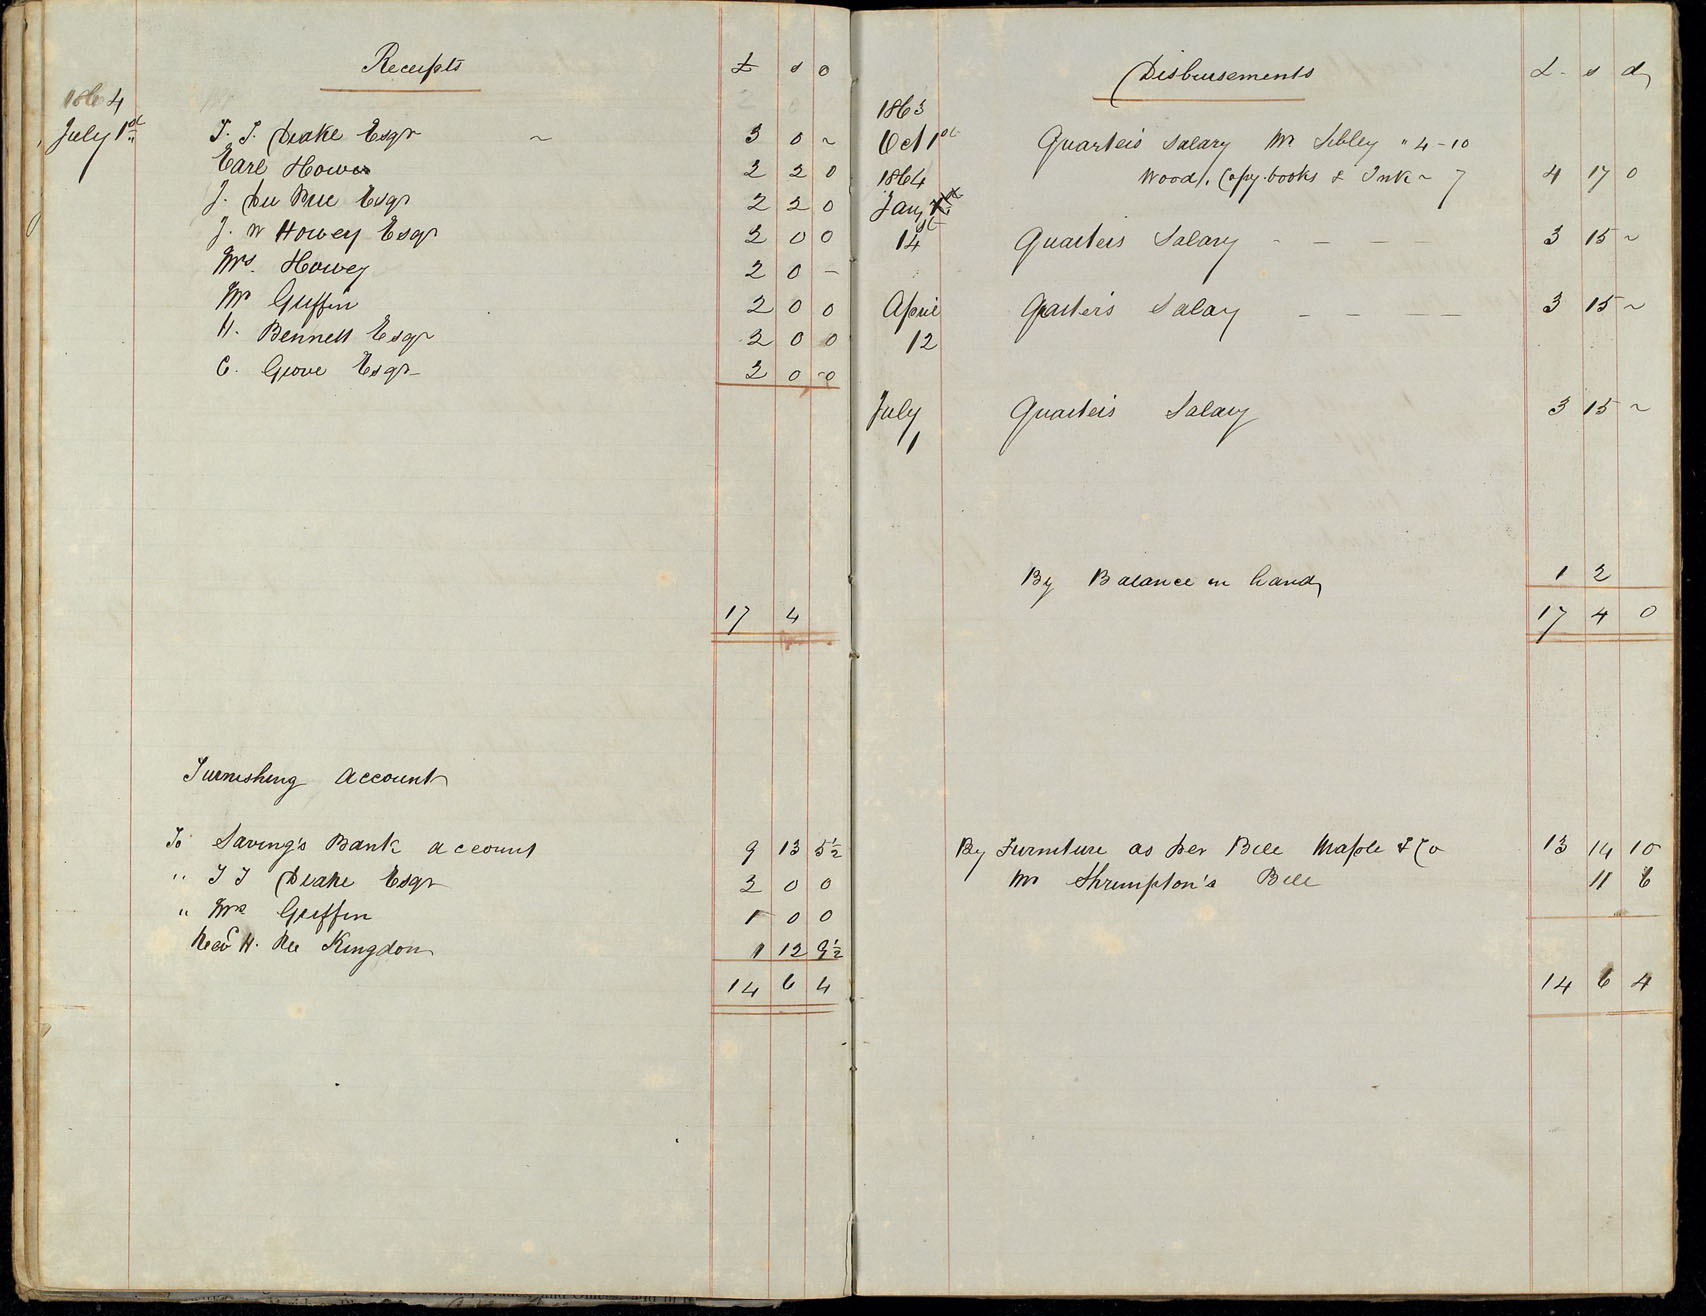 Receipts £ s d
1864
July 1st T. T. Drake Esqr ~ 3 0 ~
Earl Howe 2 2 0
J. Du Pre Esqr 2 2 0
J. W Howey Esqr 2 0 0
Mrs. Howey 2 0 -
Mr Griffin 2 0 0
H. Bennett Esqr 2 0 0
C. Grove Esqr 2 0 0
17 4
Furnishing Account
To Saving's Bank account 9 13 5½
" T T Drake Esqr 2 0 0
" Mr Griffin 1 0 0
H. Kingdon 1 12 9½
14 6 4
Disbursements £ s d
1863
Oct 1st Quarter's Salary Mr Sibley " 4-10
1864 Wood, Copy-books & Ink ~ 7 4 17 0
Jany
14 Quarters Salary - - - - 3 15 ~
April Quarter's Salary - - - - 3 15 ~
12
July Quarter's Salary 3 15 ~
1
By Balance in hand 1 2
17 4 0
By Furniture as per Bill Maple & Co 13 14 10
Mr Shrimpton's Bill 11 6
14 6 4